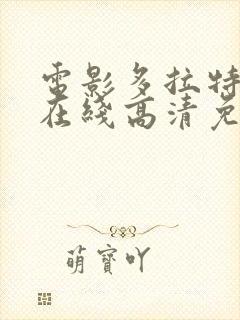 電影多拉特
在綫高清免
萌寶吖